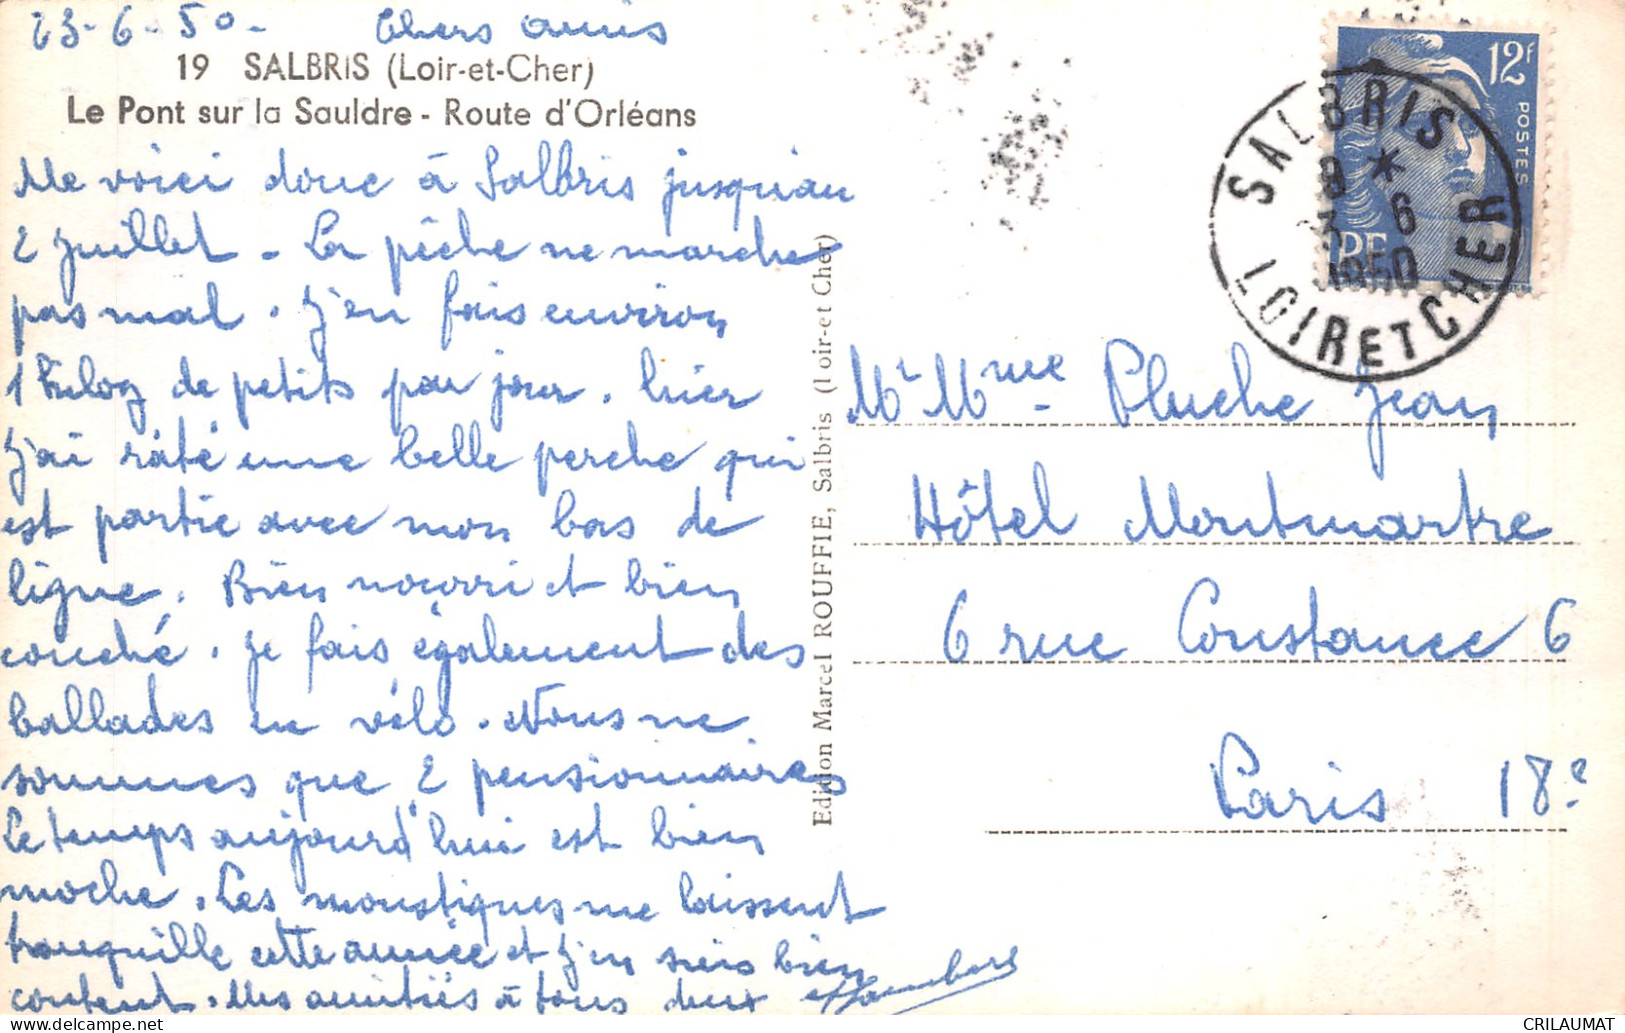 23-6-50- Chers amis
19 SALBRIS (Loir-et-Cher)
Le Pont sur la Sauldre - Route d'Orléans
Me voici donc à Salbris jusqu'au
2 Juillet - La pêche ne marche
pas mal. J'en fais environ
1 kilog de petits par jour. hier
J'ai râté une belle perche qui
est partie avec mon bas de
ligne. Bien nourri et bien
couché. Je fais également des
ballades en vélo. Nous ne
sommes que 2 pensionnaires
Le temps aujourd'hui est bien
moche. Les moustiques me laissent
tranquille cette année et j'en suis bien
content. Mes amitiés à tous deux
Edition Marcel ROUFFIE, Salbris (Loir-et Cher)
12F
POSTES
RF
SALBRIS
8 *
3 6
1950
LOIR ET CHER
Mr Mme Pluche Jean
Hôtel Montmartre
6 rue Constance 6
Paris 18e
CRILAUMAT